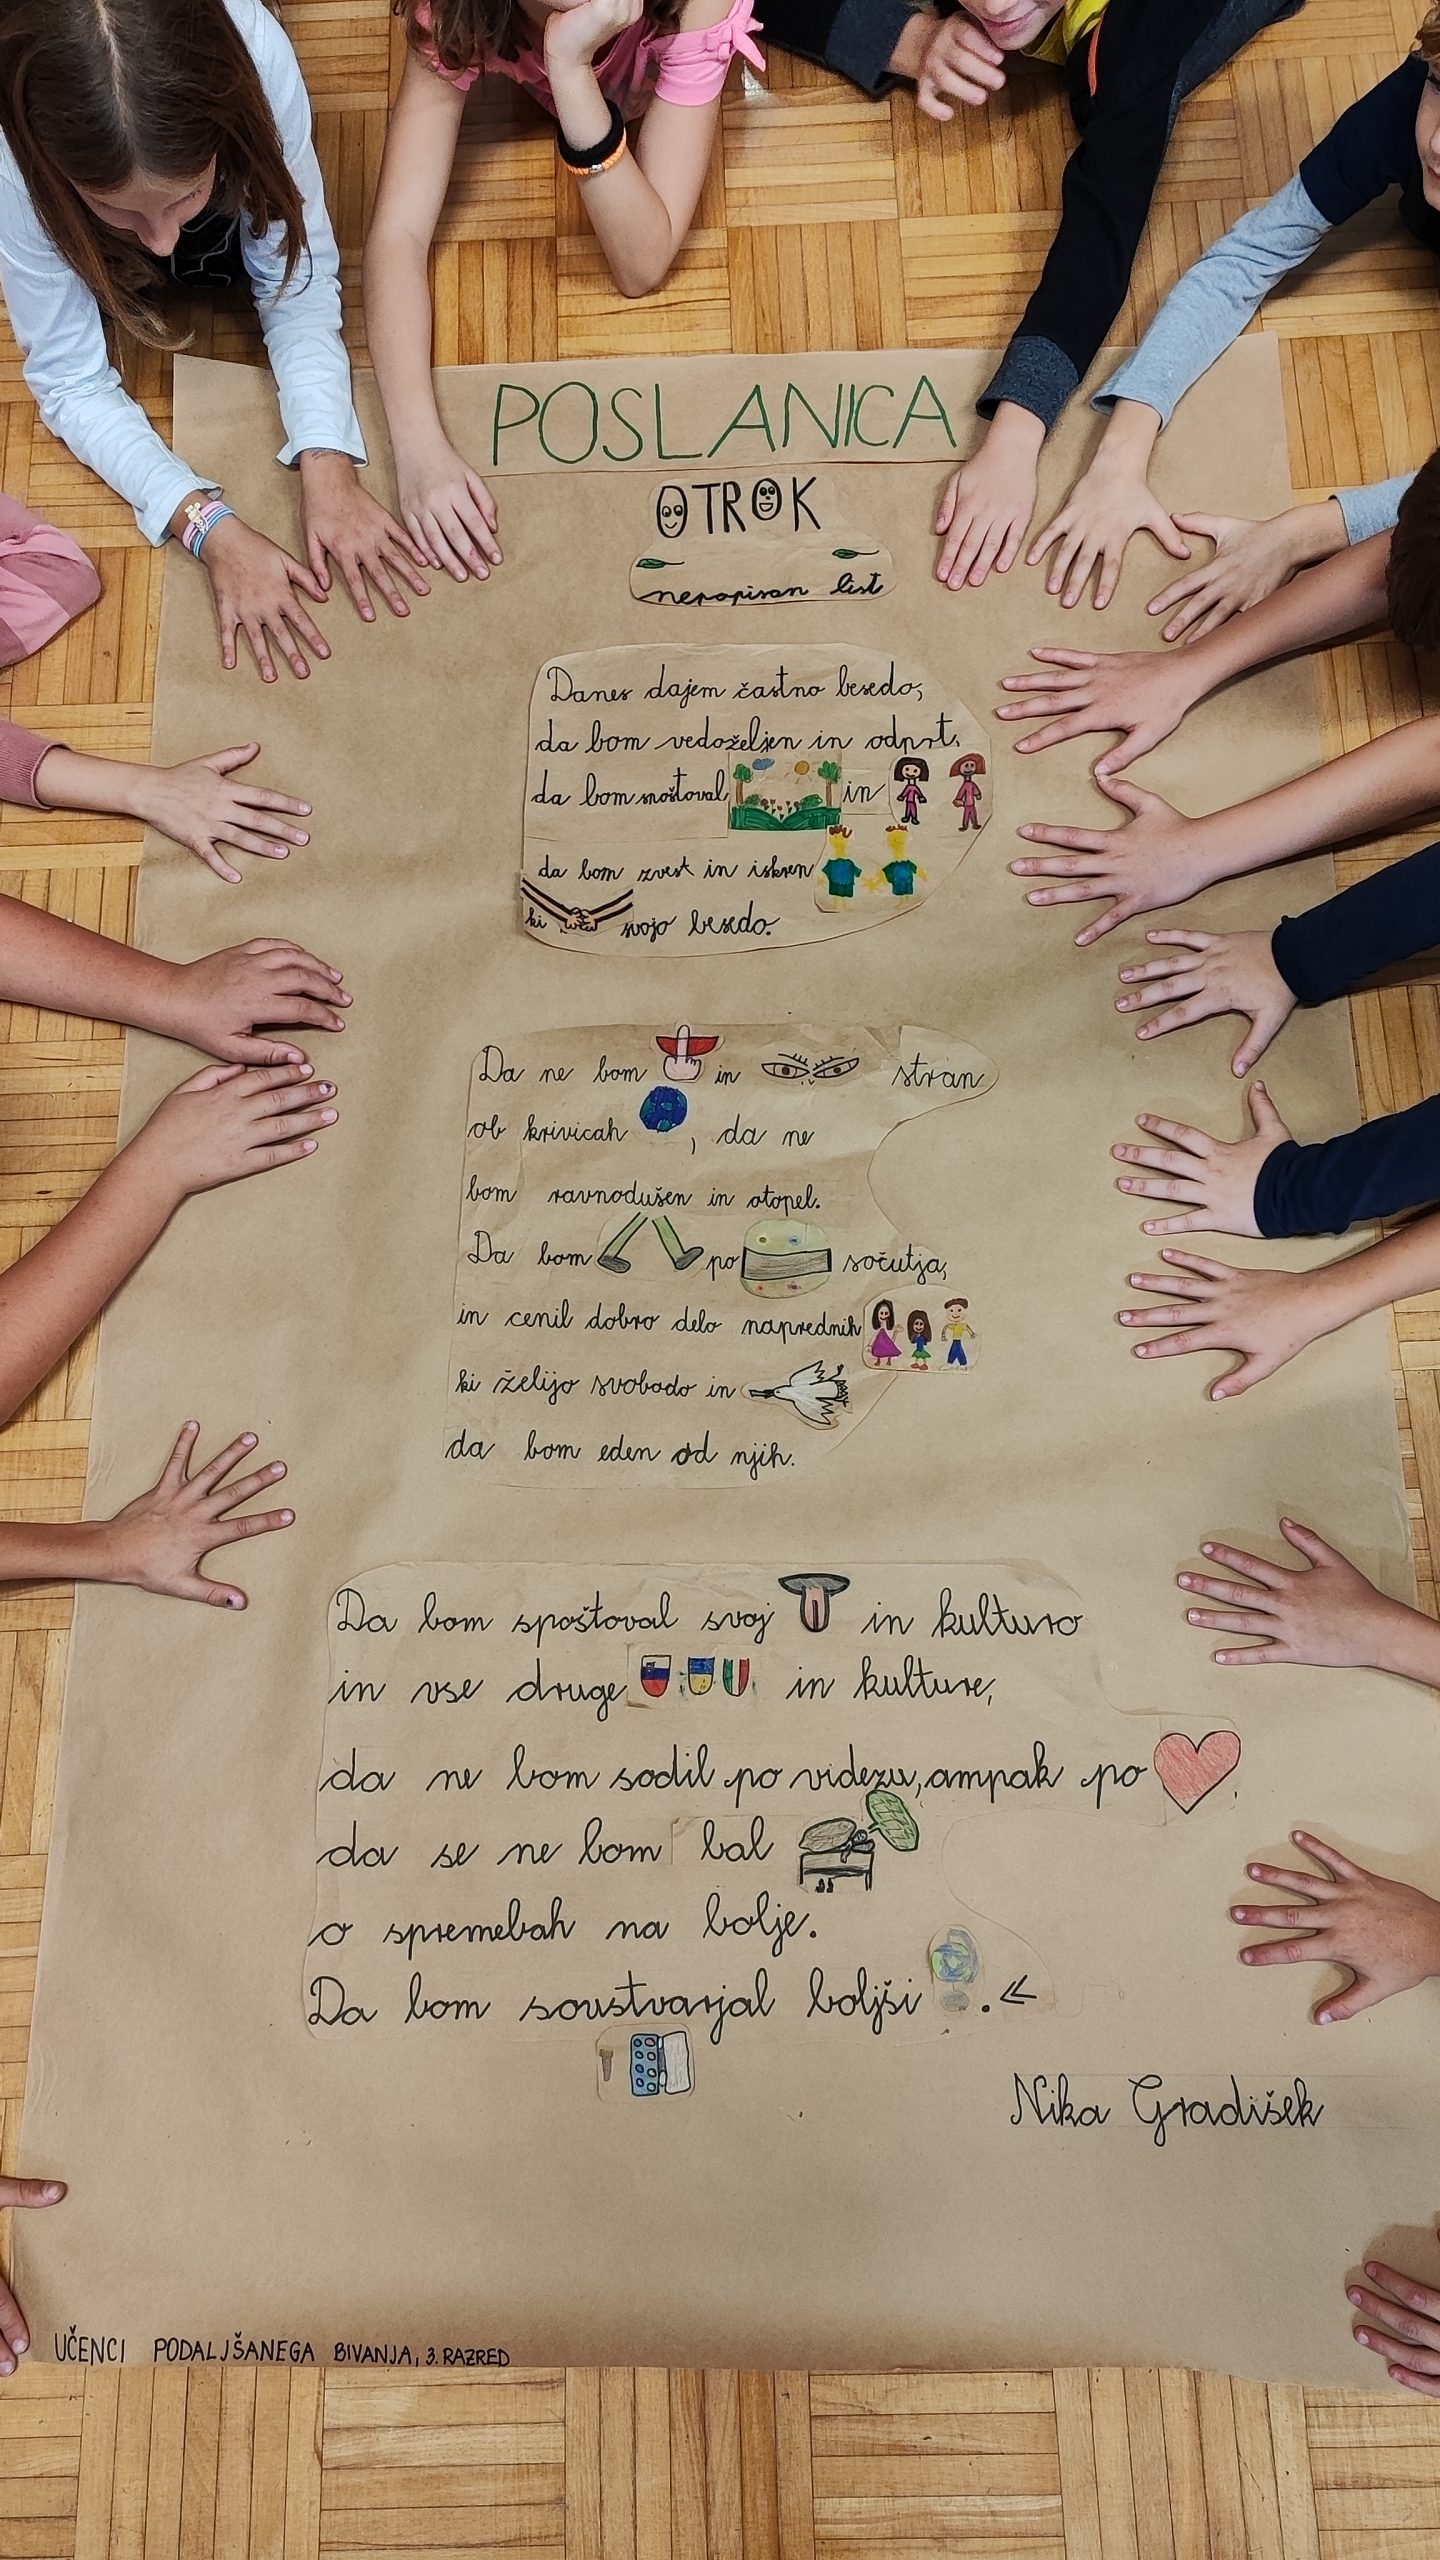 POSLANICA
OTROK
nepopisan list
Danes dajem častno besedo,
da bom vedoželjen in odprt,
da bom spoštoval in
da bom zvest in iskren
ki svojo besedo.
Da ne bom in stran
ob krivicah , da ne
bom ravnodušen in otopel.
Da bom po sočutja,
in cenil dobro delo naprednih
ki želijo svobodo in
da bom eden od njih.
Da bom spoštoval svoj in kulturo
in vse druge in kulture,
da ne bom sodil po videzu, ampak po .
da se ne bom bal
o spremebah na bolje.
Da bom soustvarjal boljši . «
Nika Gradišek
UČENCI PODALJŠANEGA BIVANJA, 3. RAZRED